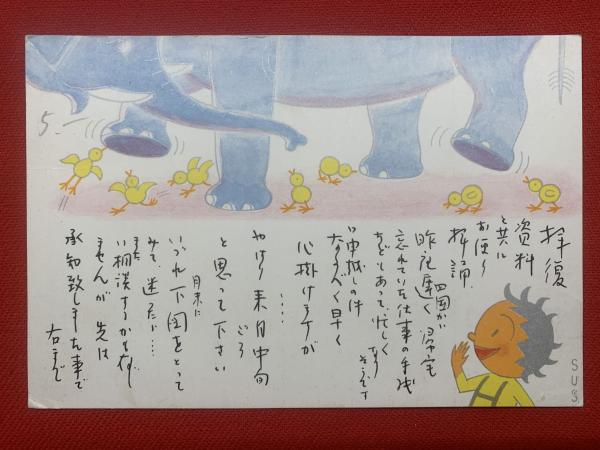 拝復
資料
と共に
お便り
拝誦
四国から
昨夜遅く帰宅
忘れていた仕事の手
などもあって、忙しく
なりそうです
お申越しの件
なるべく早く
心掛けますが
....
やはり来月中旬
ごろ
と思って下さい
月末に
いづれ下図をとって
みて、迷ったら....
また
ご相談するかも知れ
ませんが 先は
承知致しました事で
右まで
5.-
SUS.